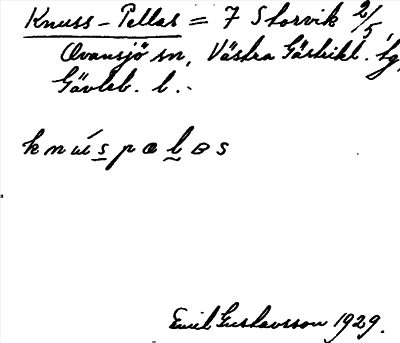 Knuss-Pellas = 7 Storvik 2/5
Ovansjö sn, Västra Gästrikl. tg,
Gävleb. l.
knúspælɵs
Emil Gustavsson 1929.